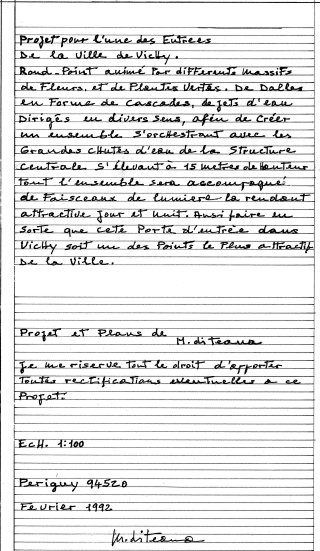 Projet pour l'une des Entrees
De la Ville de Vichy.
Rond-Point animé Par differents massifs
de Fleurs, et de Plantes Vertes. De Dalles
en Forme de Cascades, de jets d'eau
Dirigés en divers sens, afin de Créer
un ensemble s'orchestrant avec les
Grandes chutes d'eau de la Structure
Centrale s'élevant à 15 metres de Hauteur
tout l'ensemble sera accompagné
de Faisceaux de lumiere la rendant
attractive jour et nuit. Ainsi faire en
sorte que cete Porte d'entrée dans
Vichy soit un des Points le Plus attractif
De la Ville.
Projet et Plans de
M. diteana
Je me riserve tout le droit d'apporter
toutes rectifications eventuelles a ce
Projet.
Ech. 1:100
Perigny 94520
Fevrier 1992
M. diteana